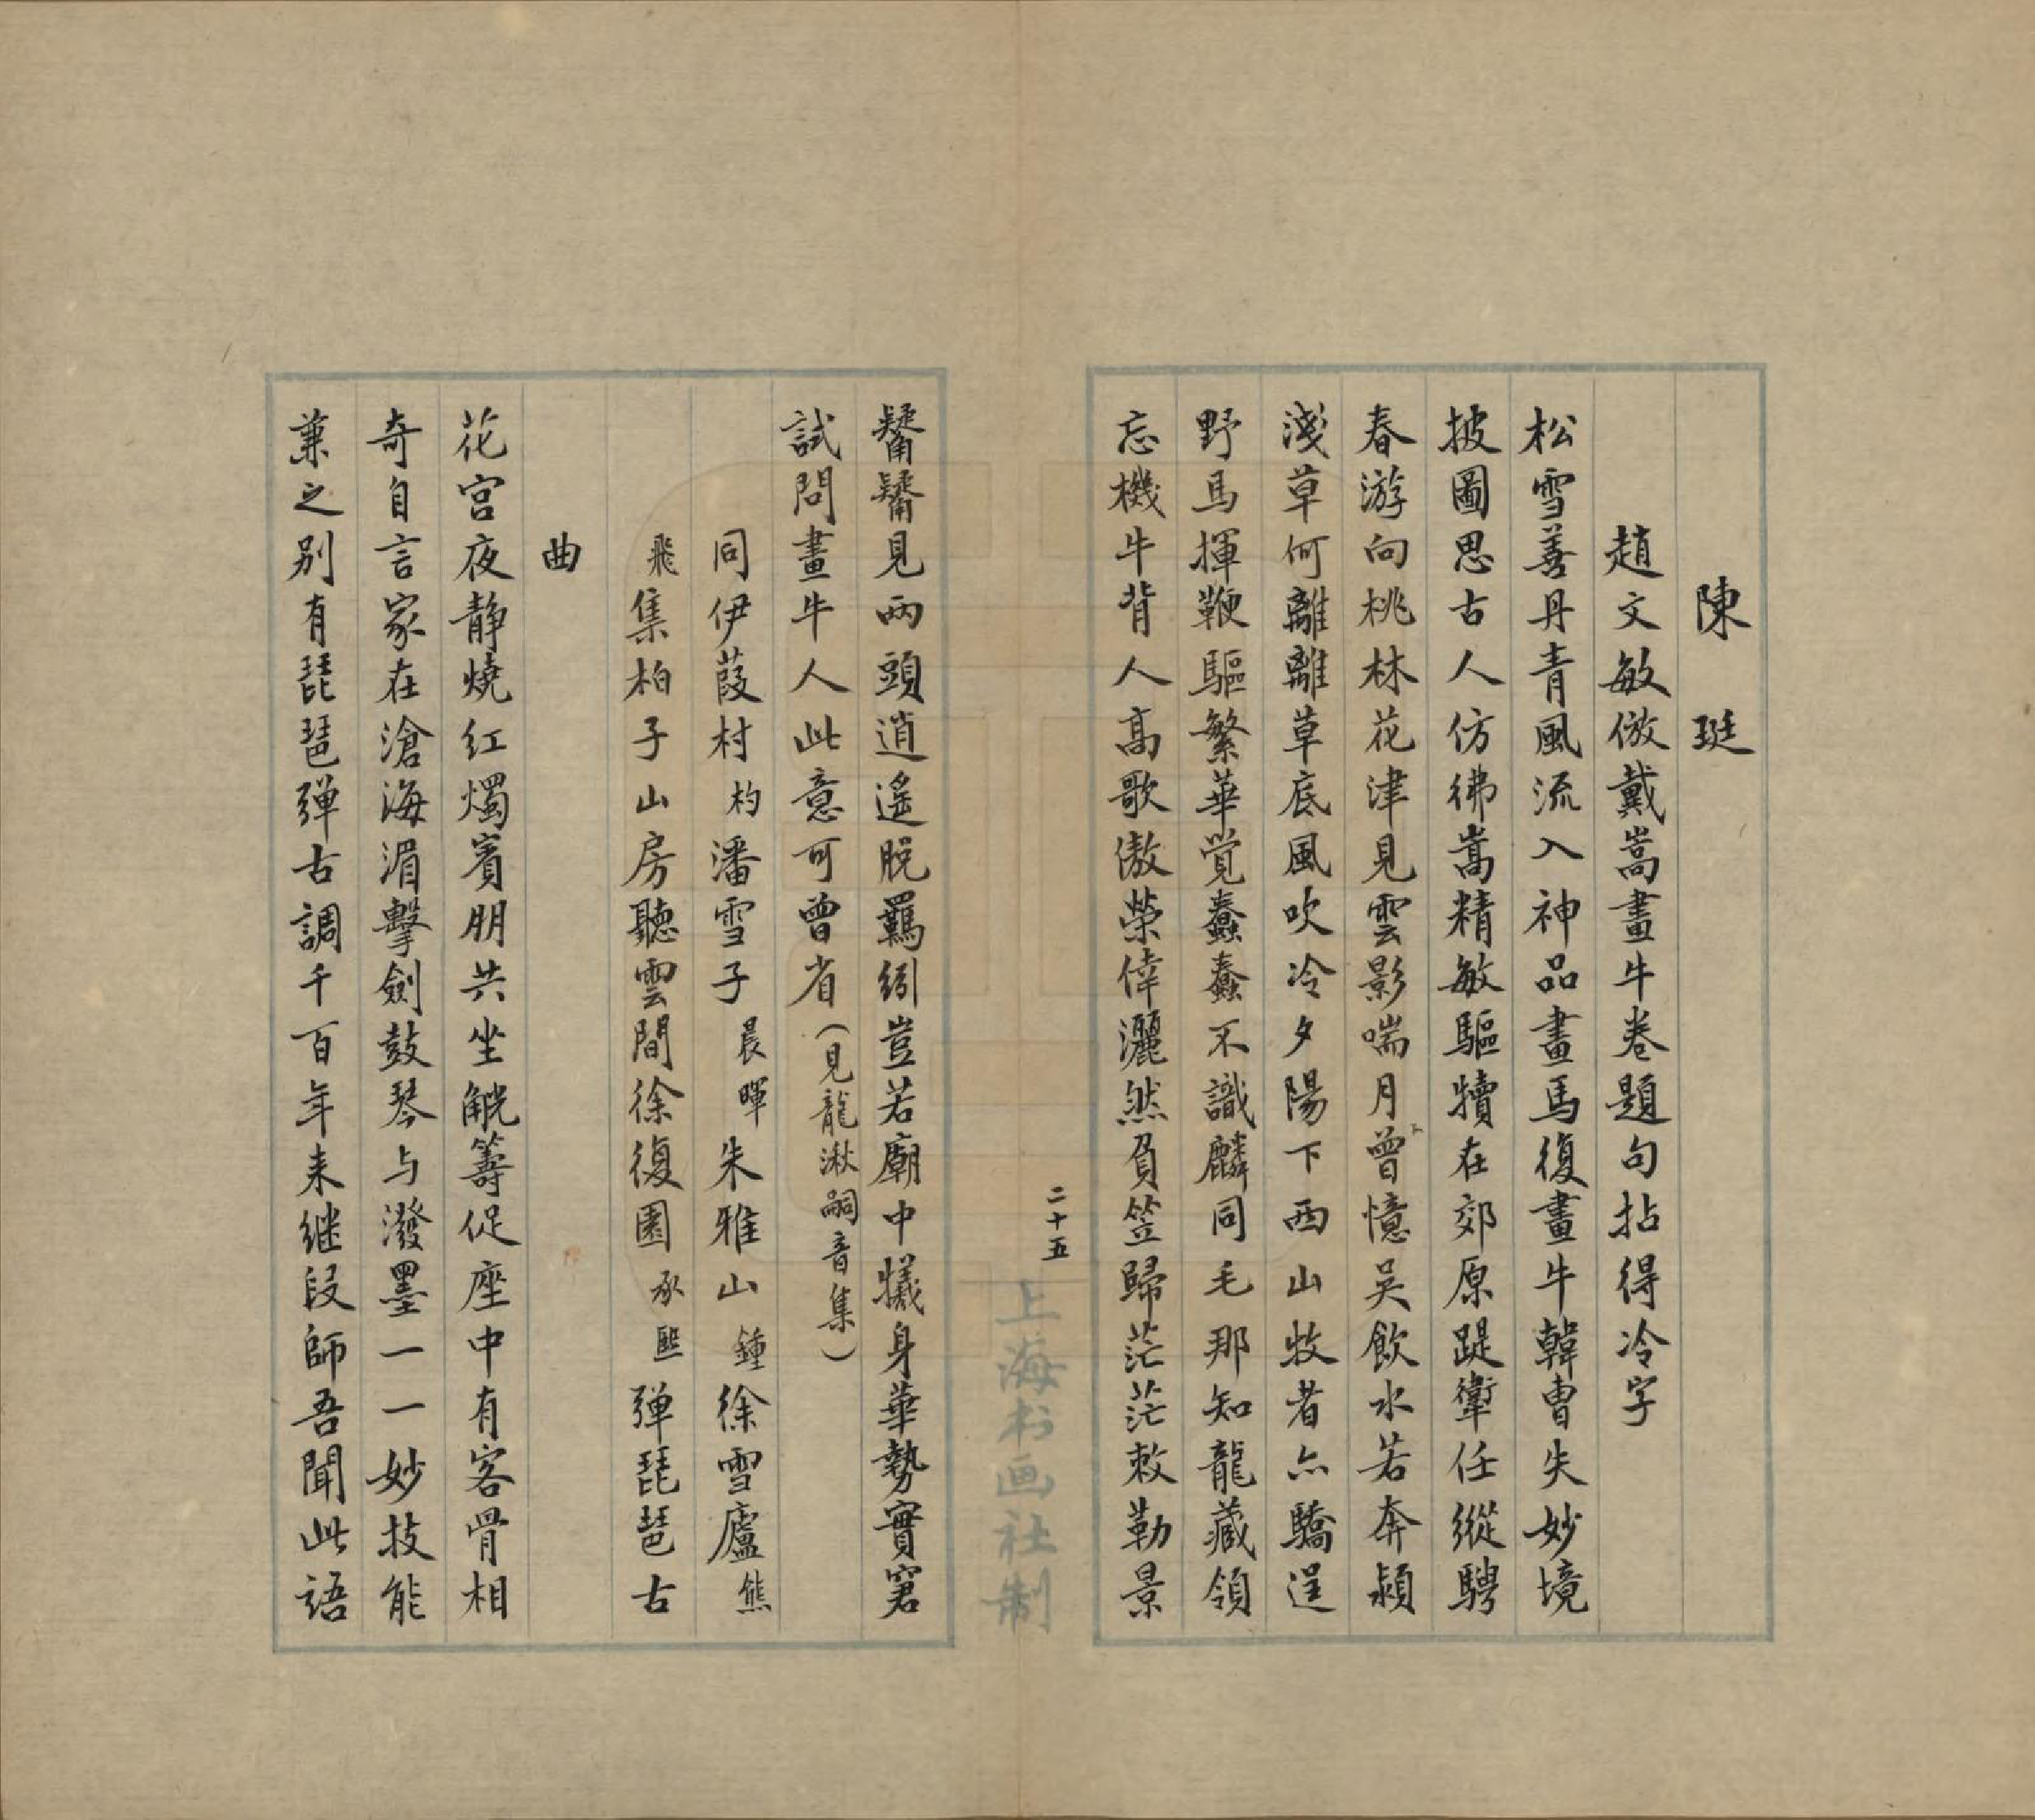 陳珽
趙文敏倣戴嵩畫牛卷題句拈得冷字
松雪善丹青風流入神品畫馬復畫牛韓曹失妙境
披圖思古人仿彿嵩精敏驅犢在郊原踶𨅬任縱騁
春游向桃林花津見雲影喘月曾憶吳飲水若奔潁
淺草何離離草底風吹冷夕陽下西山牧者亦驕逞
野馬揮鞭驅繁華覺蠢蠢不識麟同毛那知龍藏領
忘機牛背人高歌傲榮倖灑然負笠歸茫茫敕勒景
二十五
上海书画社制
觺觺見兩頭逍遙脫羈紖豈若廟中犧身華勢實窘
試問畫牛人此意可曾省（見龍湫嗣音集）
同伊葭村杓潘雪子晨暉朱雅山鍾徐雪廬熊
飛集柏子山房聽雲間徐復園承熙弹琵琶古
曲
花宮夜静燒红燭賓朋共坐觥籌促座中有客骨相
奇自言家在滄海湄擊劍鼓琴与潑墨一一妙技能
兼之别有琵琶弹古調千百年来継段師吾聞此語